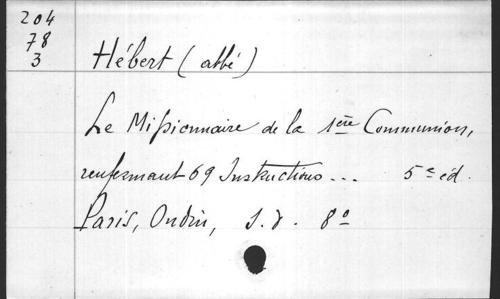 204
78
3
Hébert (abbé)
Le Missionnaire de la 1ère Communion,
renfermant 69 Instructions... 5e éd.
Paris, Oudin, s.d. 8o